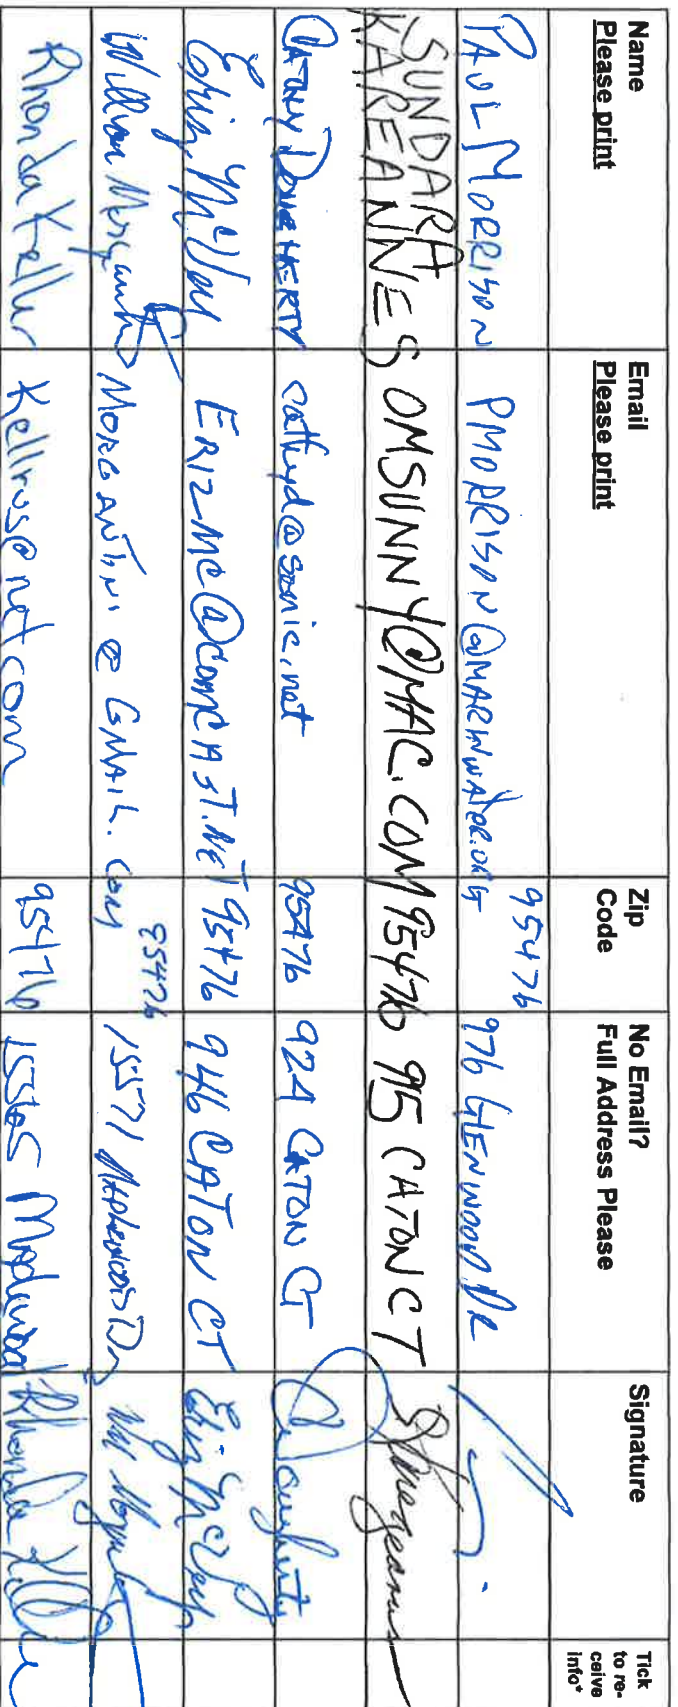 Name
Please print
Email
Please print
Zip
Code
No Email?
Full Address Please
Signature
Tick
to re-
ceive
info*
PAUL MORRISON PMORRISON@MARINWATER.ORG 95476 976 GLENWOOD DR
SUNDARA
KAREANNES OMSUNNY@MAC.COM 95476 915 CATON CT
CATHY DOUGHERTY cathyd@sonic.net 95476 924 CATON CT
McVey ERIZMC@COMCAST.NET 95476 946 CATON CT
William Morgantini MORGANTINI@GMAIL.COM 95476 15571 DR
Rhonda Keller Kellrus@netcom 95476 Rhonda Keller